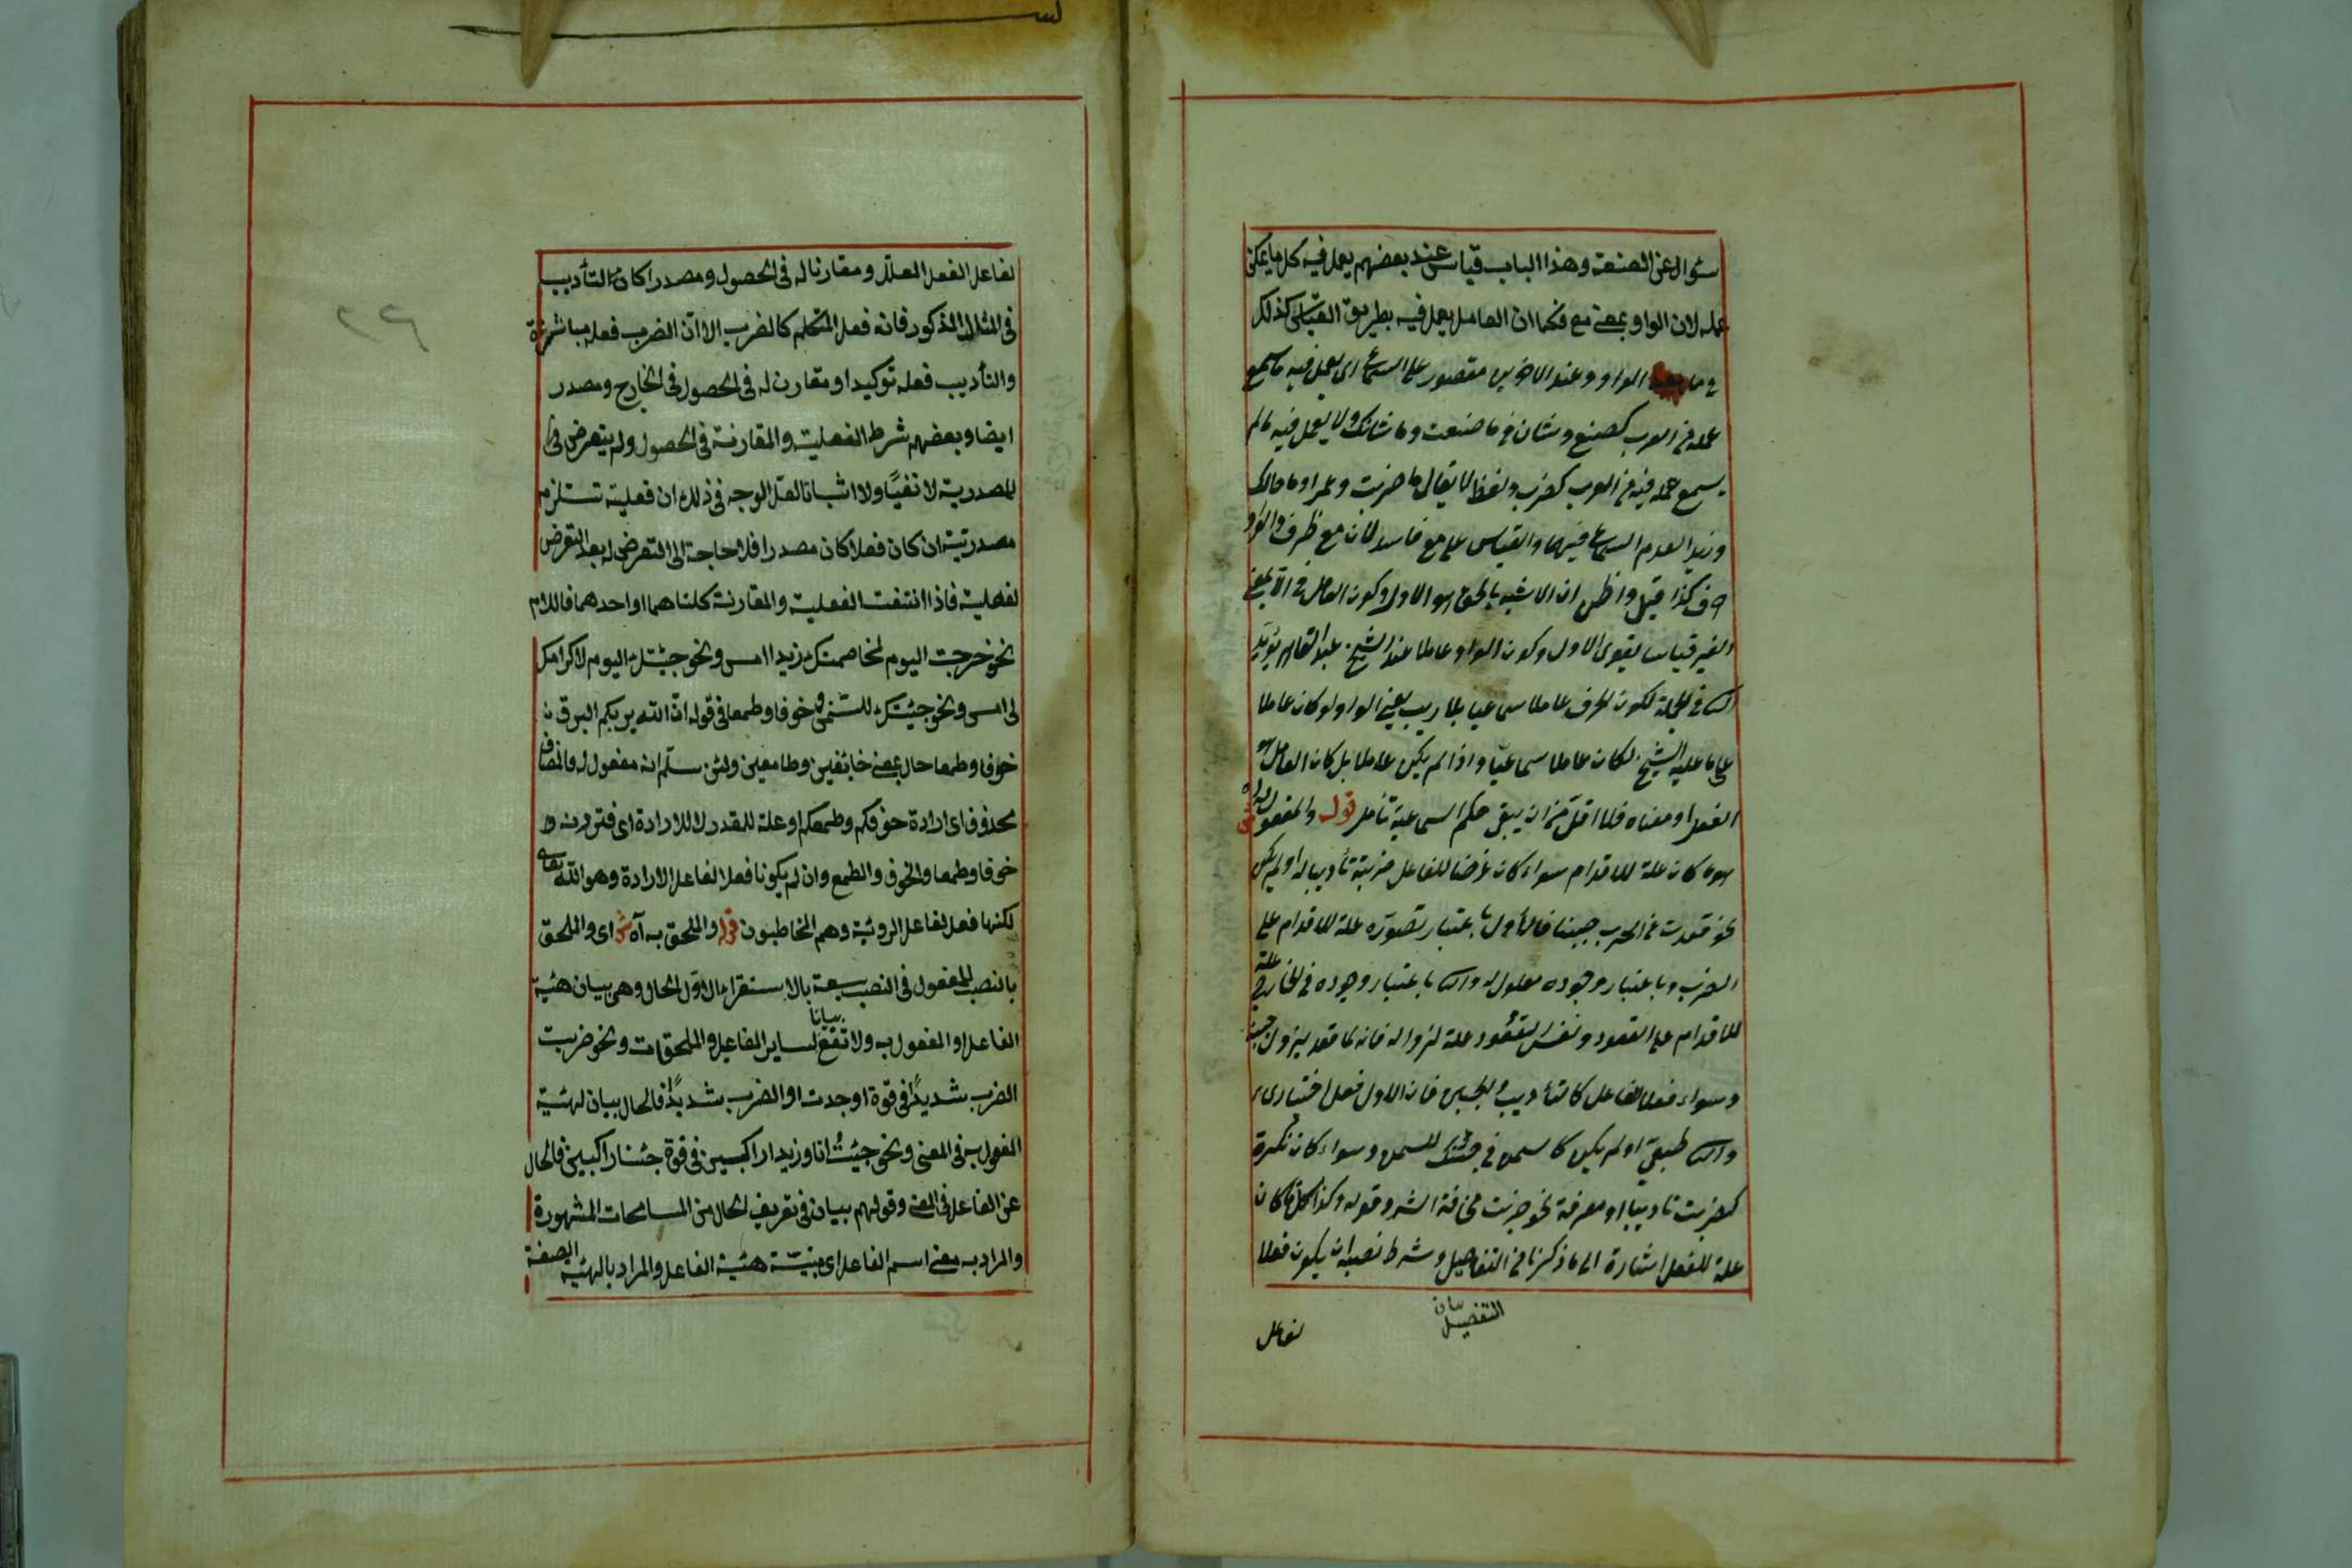 سؤال عن الصنعة وهذا الباب قياس عند بعضهم يعمل فيه كل ما يمكن
عمله لان الواو بمعنى مع فكما ان العامل يعمل فيه بطريق القياس كذلك
فيما بعد الواو وعند الاخرين مقصور على السماع اى يعمل فيه ما سمع
عمله من العرب كصنع وشان فى ما صنعت وما شانك ولا يعمل فيه ما لم
يسمع عمله فيه من العرب كضرب ولفظ لا يقال ما ضربت وعمرا وما مالك
وزيدا لعدم السماع فيهما والقياس على مع فاسد لان مع ظرف والواو
حرف كذا قيل واظن ان الاشبه بالحق هو الاول وكون العامل فى
الغير قياسا يقوى الاول وكون الواو عاملا عند الشيخ عبد القاهر يؤيد
فى الجملة لكون الحرف عاملا سماعيا بلا ريب يعنى الواو لو كان عاملا
على ما عليه الشيخ لكان عاملا سماعيا واذا لم يكن عاملا بل كان العامل هو
الفعل او معناه فلا اقل من ان يبقى حكم السماعية تأمل قوله والمفعول له
هو ما كان علة للاقدام سواء كان غرضا للفاعل ضربته تأديبا له او لم يكن
نحو قعدت عن الحرب جبنا فالاول باعتبار تصوره علة للاقدام على
الضرب وباعتبار وجوده معلول له باعتبار وجوده فى الخارج علة
للاقدام على القعود ونفس القعود علة لزواله فانه لما قعد يزول جبنه
وسواء فعلا لفاعل كالتأديب والجبن فان الاول فعل اختيارى
طبيعى او لم يكن كالسمن فى جئتك للسمن وسواء كان نكرة
كضربت تاديبا او معرفة نحو ضربت مخافة الشر وقوله وكذا كل ما كان
علة للفعل اشارة الى ما ذكرنا من التفاصيل وشرط نصبه ان يكون فعلا
بيان
التفصيل
لفاعل
لفاعل الفعل المعلل ومقارنا له فى الحصول ومصدرا كان التأديب
فى المثال المذكور فانه فعل المتكلم كالضرب الا ان الضرب فعله مباشرة
والتأديب فعله توكيدا ومقارن له فى الحصول فى الخارج ومصدر
ايضا وبعضهم شرط الفعلية والمقارنة فى الحصول ولم يتعرض
للمصدرية لا نفيا ولا اثباتا لعل الوجه فى ذلك ان فعلية تستلزم
مصدرية ان كان فعلا كان مصدرا فلا حاجة الى التعرض له بعد التعرض
لفعلية فاذا انتفت الفعلية والمقارنة كلتاهما او احدهما فاللام
نحو خرجت اليوم لمخاصمتك زيدا امس ونحو جئتك اليوم لاكرامك
لى امس ونحو جئتك للسمن خوفا وطمعا فى قوله ان الله يريكم البرق
خوفا وطمعا حال بمعنى خائفين وطامعين ولئن سلم انه مفعول له فالمضاف
محذوف اى ارادة خوفكم وطمعكم او علة للمقدر لا للارادة اى فترونه
خوفا وطمعا والخوف والطمع وان لم يكونا فعلا لفاعل الارادة وهو الله تعالى
لكنها فعل لفاعل الرؤية وهم المخاطبون قوله والملحق به آه ش اى والملحق
بالنصب للمفعول فى النصب سبعة بالاستقراء الاول الحال وهى بيان هيئة
الفاعل او المفعول به ولا تقع بيانا لساير المفاعيل والملحقات ونحو ضربت
الضرب شديدا فى قوة اوجدت او الضرب شديدا فالحال بيان لهيئة
المفعول به فى المعنى ونحو جيئت انا وزيد راكبين فى قوة جئنا راكبين فالحال
عن الفاعل فى المعنى وقولهم بيان فى تعريف الحال من المسامحات المشهورة
والمراد به معنى اسم الفاعل اى مبيّنة هيئة الفاعل والمراد بالهيئة الصفة